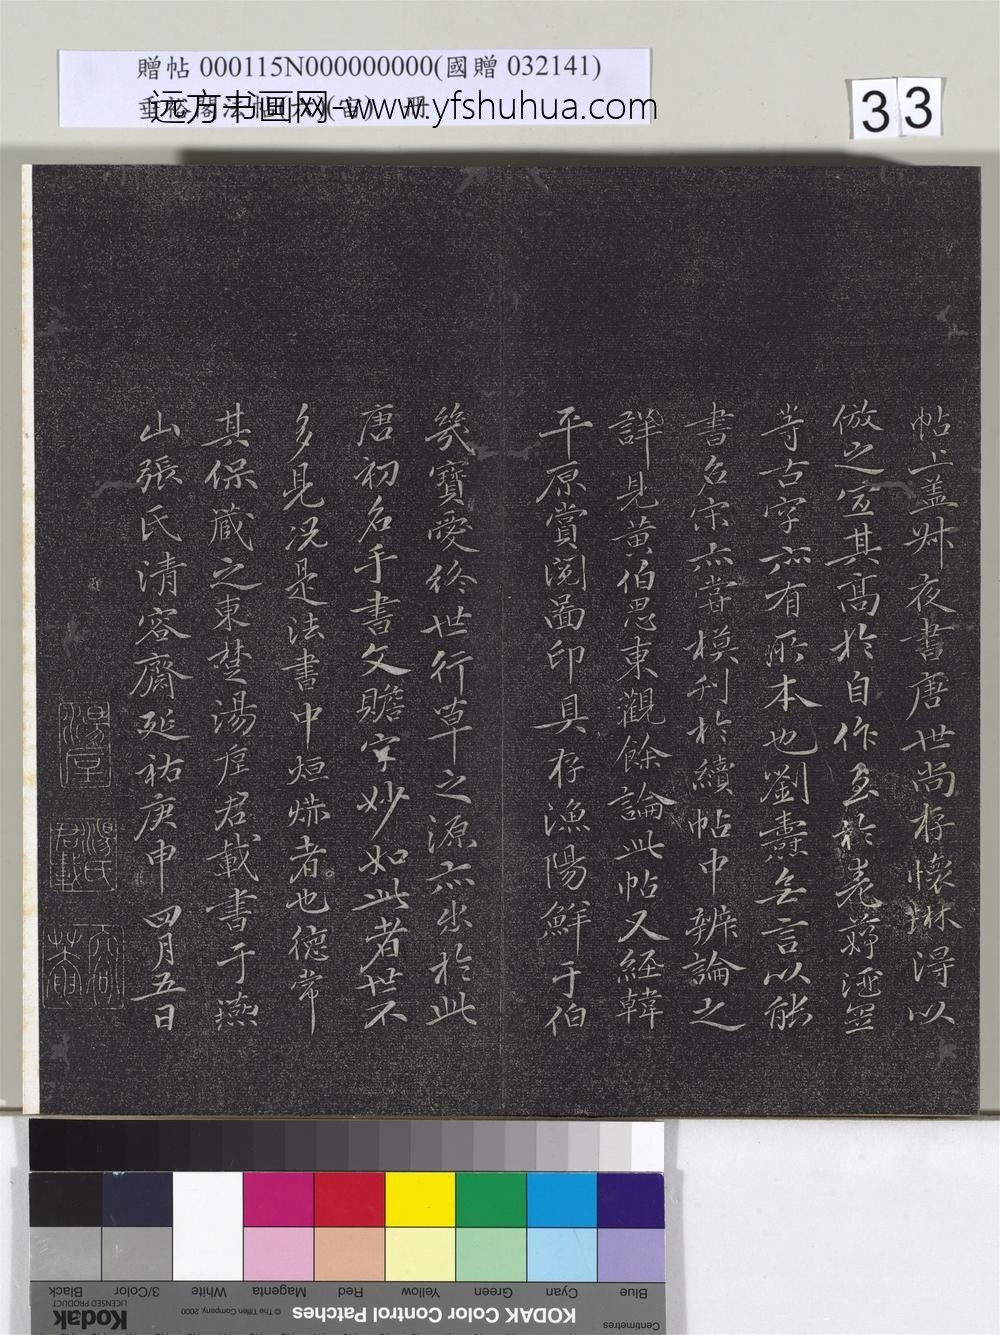 贈帖 000115N000000000(國贈 032141)
远方书画网-www.yfshuhua.com
33
帖上蓋叔夜書唐世尚存懷琳得以
倣之宜其高於自作至於
等古字亦有所本也劉燾無言以能
書名宋亦嘗模刊於續帖中辨論之
詳見黃伯思東觀餘論此帖又經韓
平原賞閱圖印具存漁陽鮮于伯
幾寶愛終世行草之源亦出於此
唐初名手書文贍字妙如此者世不
多見況是法書中烜爀者也德常
其保藏之東楚湯垕君載書于燕
山張氏清容齋延祐庚申四月五日
湯垕
湯氏君載
KODAK Color Control Patches
Blue
Cyan
Green
Yellow
Red
Magenta
White
3/Color
Black
Centimetres
© The Tiffen Company, 2000
Kodak
LICENSED PRODUCT